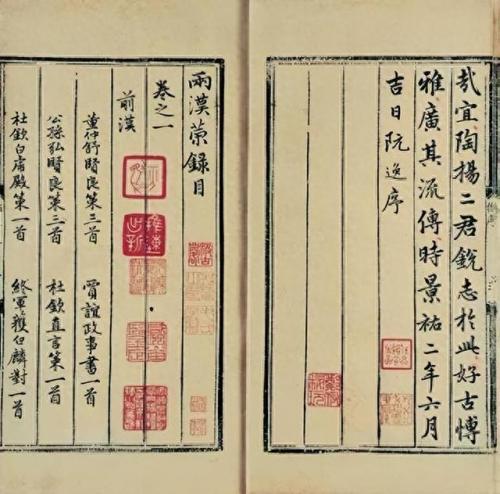 哉宜陶揚二君銳志於此好古博
雅廣其流傳時景祐二年六月
吉日阮逸序
兩漢策錄目
卷之一
前漢
董仲舒賢良策三首 賈誼政事書一首
公孫弘賢良策三首 杜欽直言策一首
杜欽白虎殿策一首 終軍獲白麟對一首